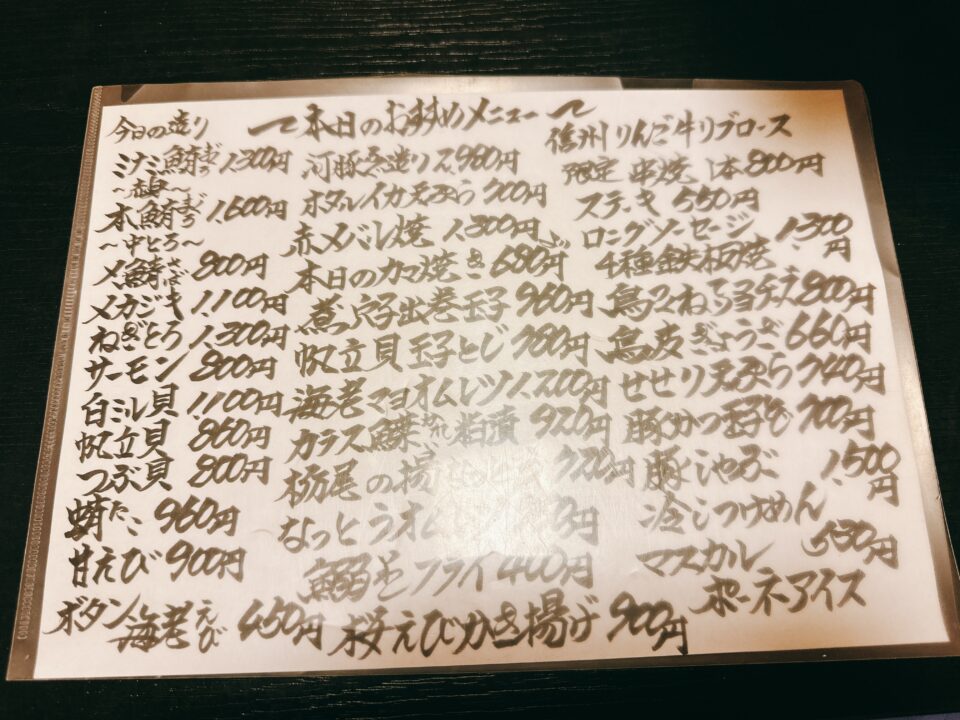 〜本日のおすすめメニュー〜
今日の造り
ミナミ鮪まぐろ 1.300円
〜赤身〜
本鮪まぐろ 1.600円
〜中とろ〜
〆鯖さば 800円
メカジキ 1.100円
ねぎとろ 1.300円
サーモン 800円
白ミル貝 1.100円
帆立貝 860円
つぶ貝 800円
蛸たこ 960円
甘えび 900円
ボタン海老えび 450円
河豚ぶつ造り 2,980円
ホタルイカ天ぷら 700円
赤メバル焼 1.300円
本日のカマ焼き 680円
煮穴子出巻玉子 960円
帆立貝玉子とじ 780円
海老マヨオムレツ 1.200円
カラス鰈かれい粕漬 920円
栃尾の揚
なっとうオム
鰯もとフライ 400円
桜えびかき揚げ 900円
信州りんご牛リブロース
限定 串焼 1本 800円
ステーキ 550円
ロングソーセージ 1.300円
4種鉄板焼
鳥つくね 800円
鳥皮ぎょうざ 660円
せせり天ぷら 740円
豚かつ玉子とじ 700円
豚しゃぶ 1.500円
冷しつけめん
マスカル 530円
ポーネアイス